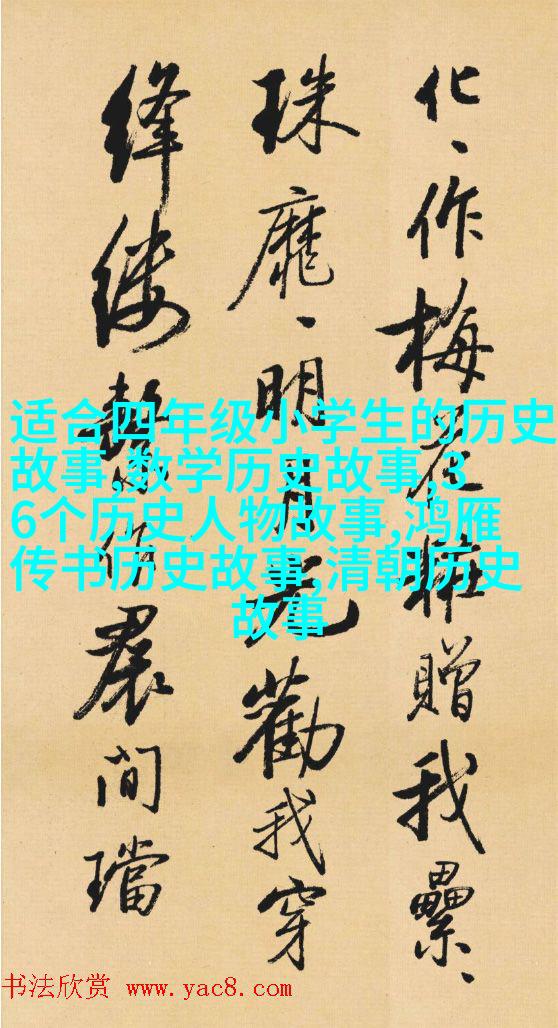 化、作梅花妝贈我纍、
珠靡、明月光勸我穿
絳縷繫作裙間璫
适合四年级小学生的历史
故事,数学历史故事,3
6个历史人物故事,鸿雁
传书历史故事,清朝历史
故事
书法欣赏 www.yac8.com